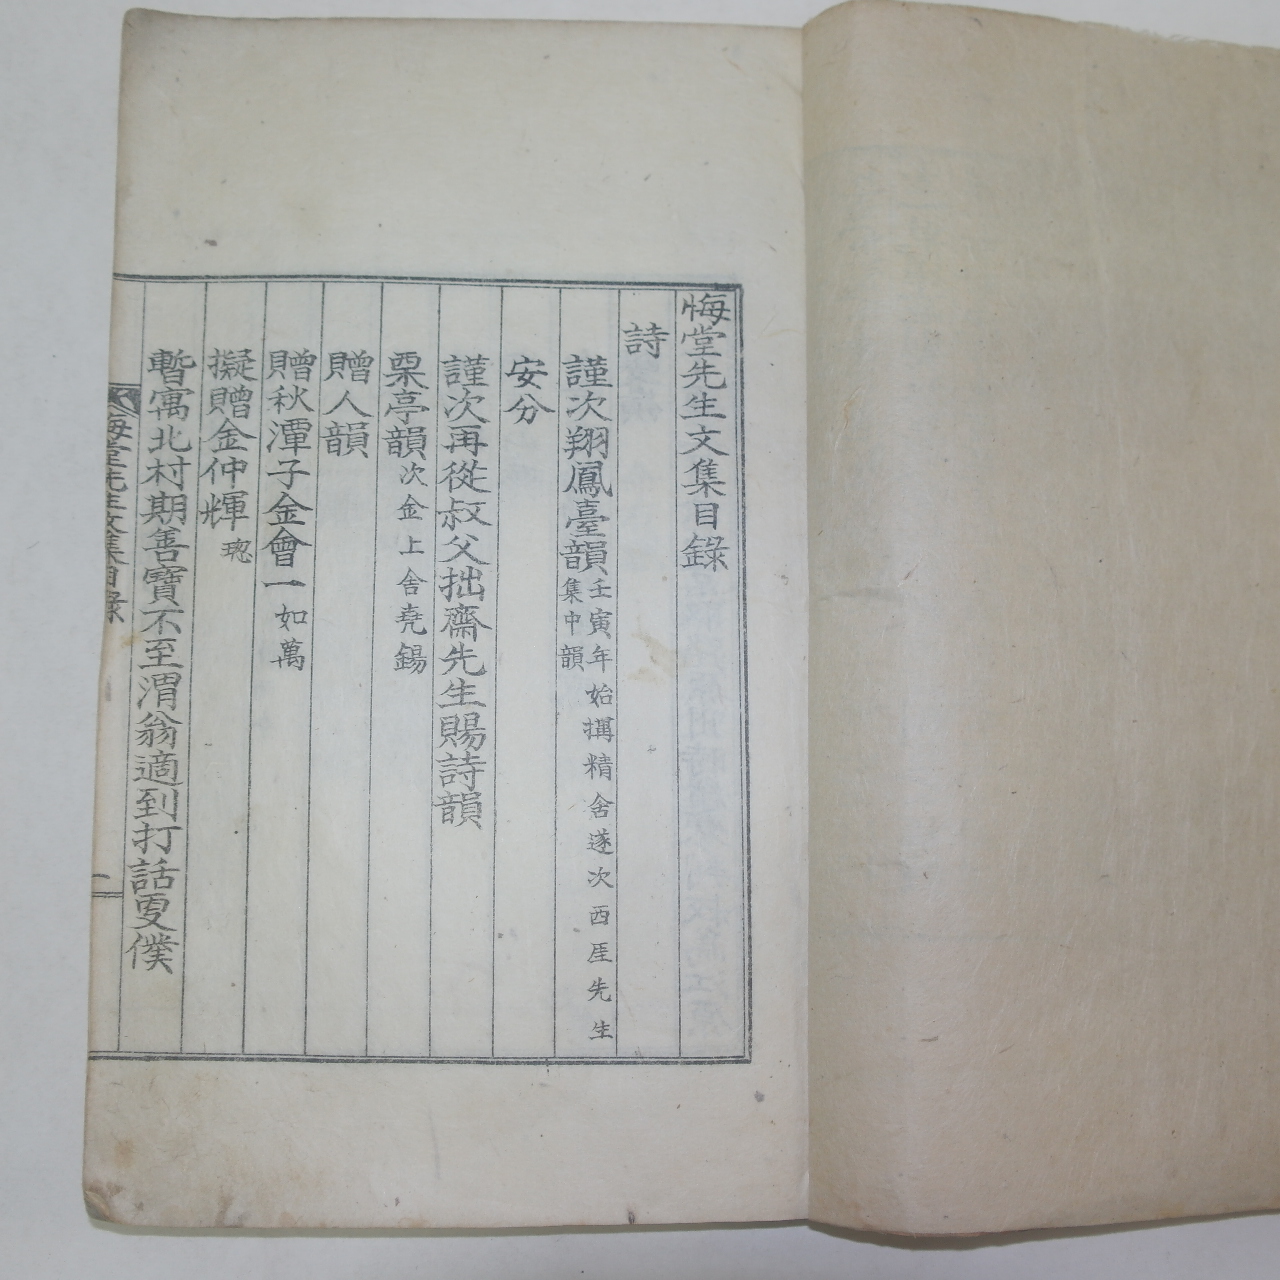 悔堂先生文集目錄
詩
謹次翔鳳臺韻 壬寅年始搆精舍遂次西厓先生
集中韻
安分
謹次再從叔父拙齋先生賜詩韻
栗亭韻 次金上舍堯錫
贈人韻
贈秋潭子金會一 如萬
擬贈金仲輝
暫寓北村期善寶不至渭翁適到打話更僕
悔堂先生文集目錄
一